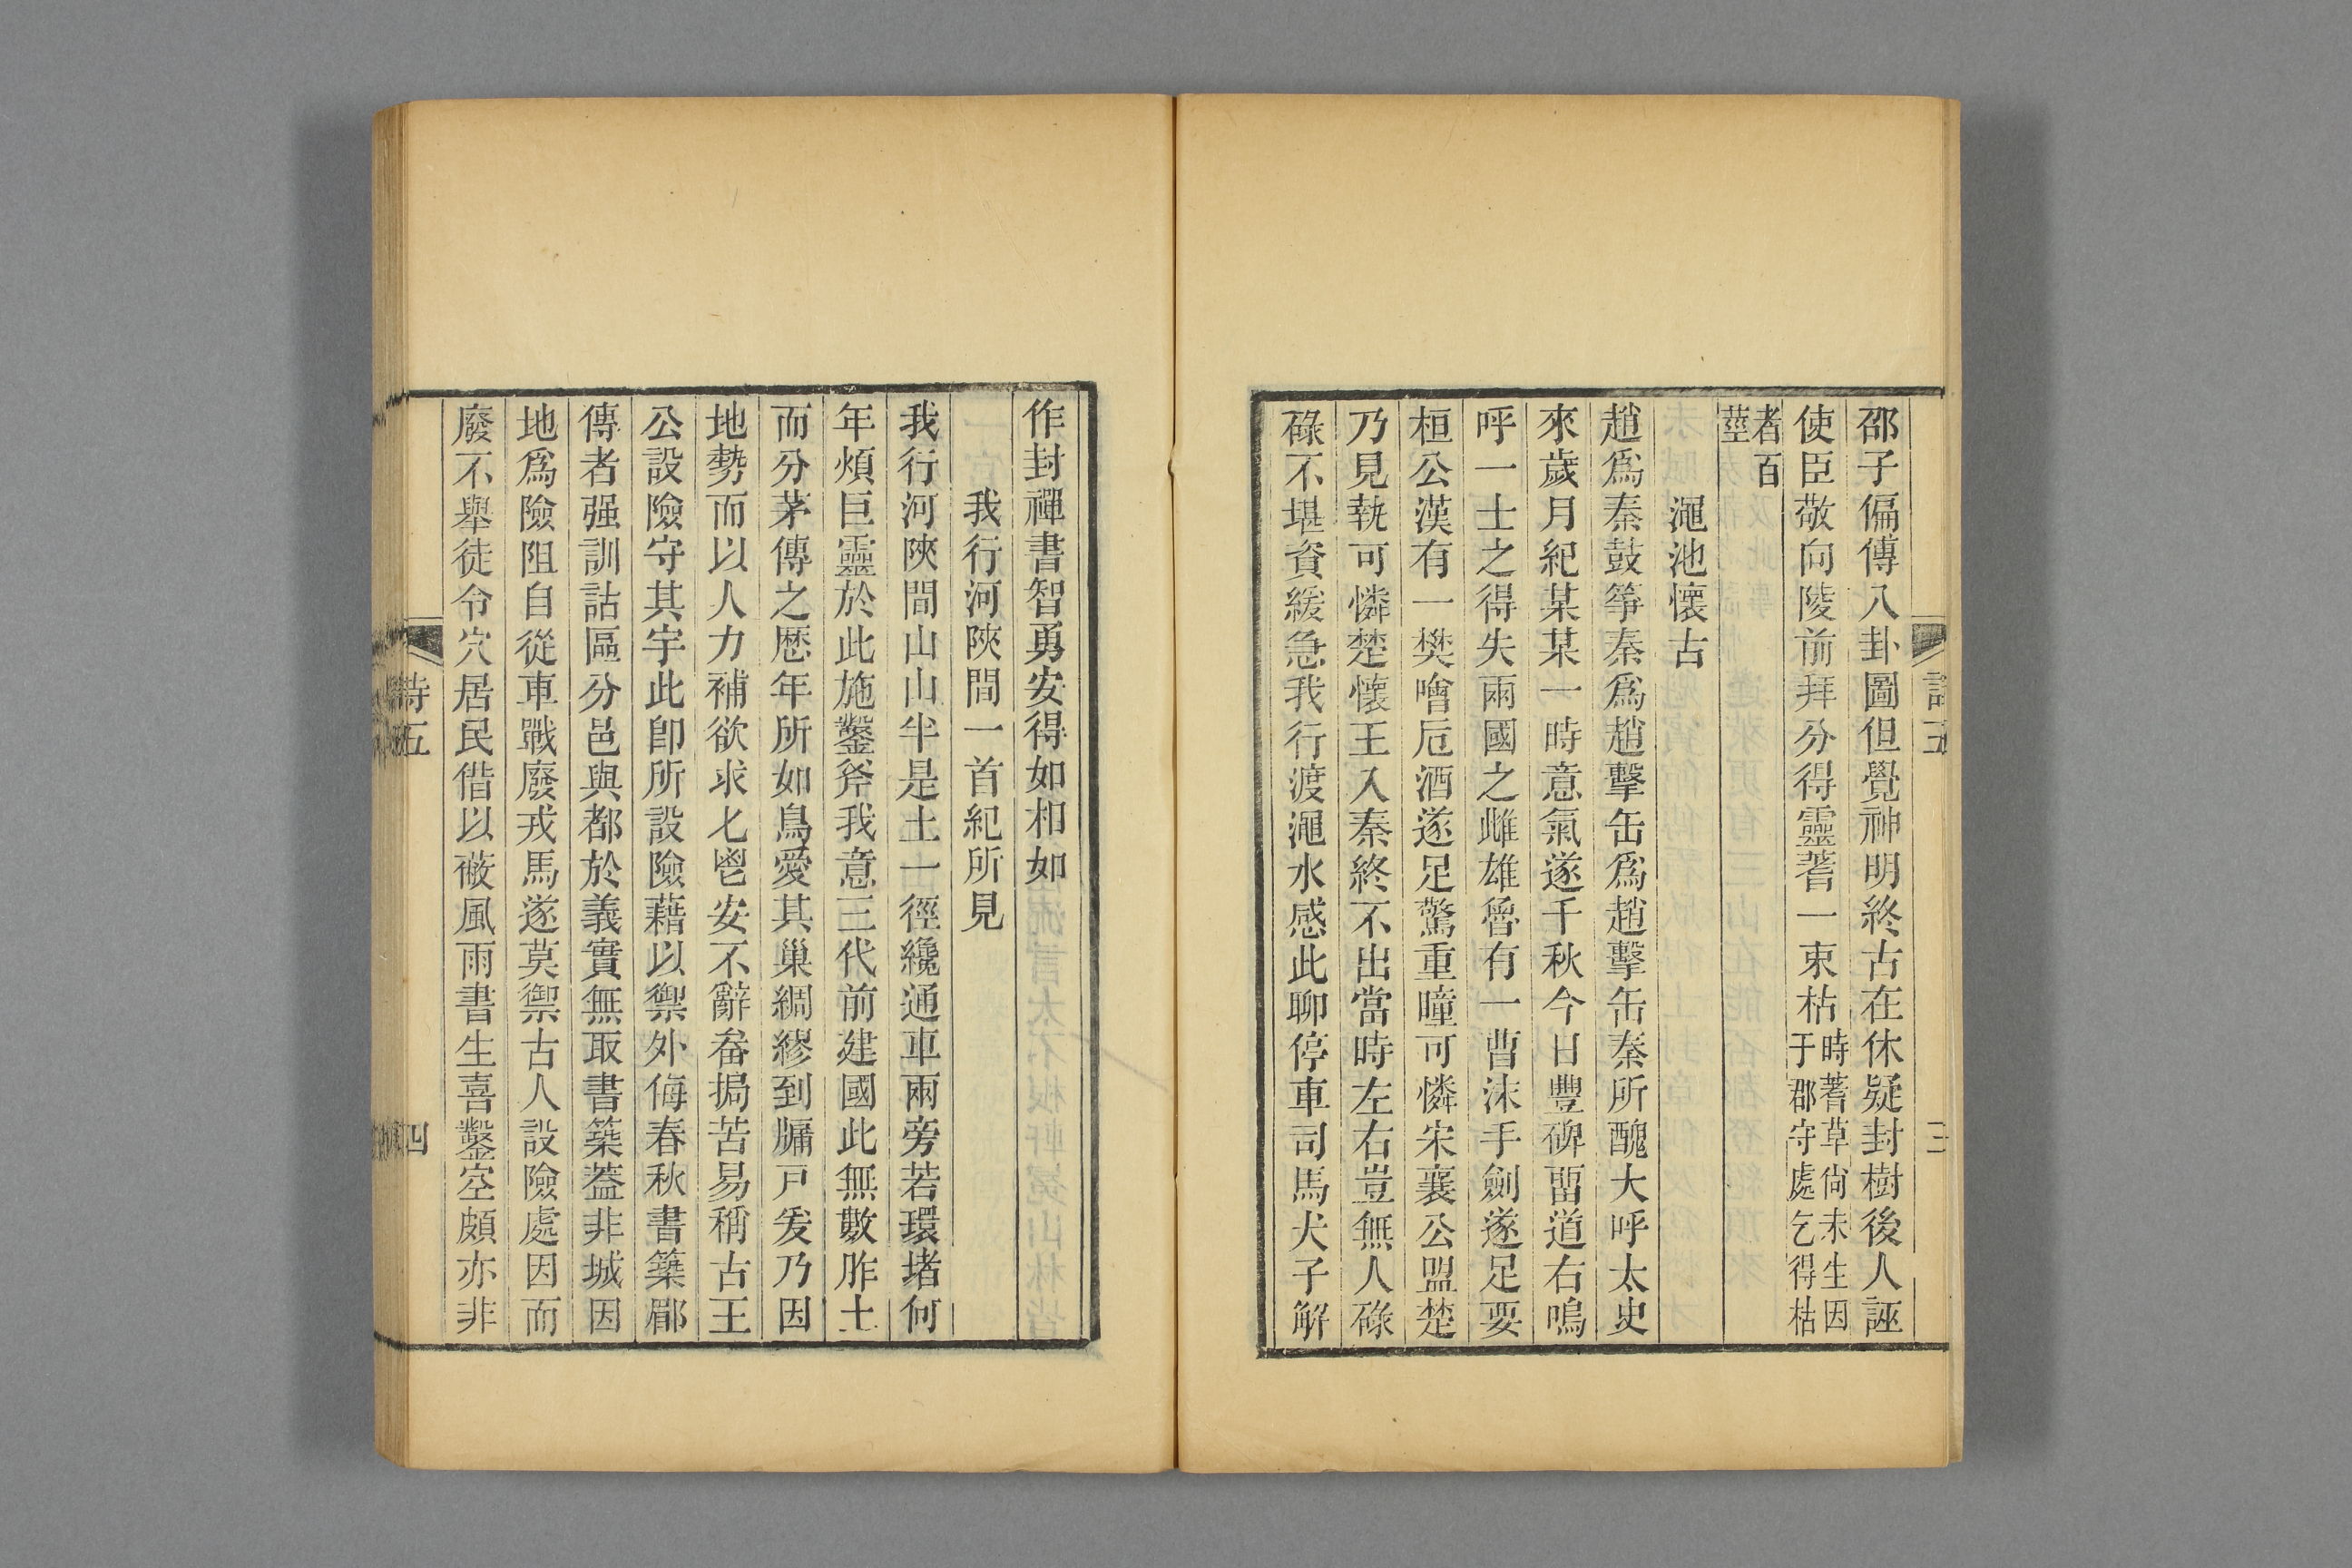 詩五
三
邵子偏傳八卦圖但覺神明終古在休疑封樹後人誣
使臣敬向陵前拜分得靈蓍一束枯時蓍草尙未生因于郡守處乞得枯
者百莖
澠池懷古
趙爲秦鼓筝秦爲趙擊缶爲趙擊缶秦所醜大呼太史
來歲月紀某某一時意氣遂千秋今日豐碑畱道右嗚
呼一士之得失兩國之雌雄魯有一曹沬手劍遂足要
桓公漢有一樊噲卮酒遂足驚重瞳可憐宋襄公盟楚
乃見執可憐楚懷王入秦終不出當時左右豈無人碌
碌不堪資緩急我行渡澠水感此聊停車司馬犬子解
作封禪書智勇安得如相如
我行河陝間一首紀所見
我行河陝間山山半是土一徑纔通車兩旁若環堵何
年煩巨靈於此施鑿斧我意三代前建國此無數胙土
而分茅傳之歷年所如鳥愛其巢綢繆到牖戸爰乃因
地勢而以人力補欲求匕鬯安不辭畚挶苦易稱古王
公設險守其宇此卽所設險藉以禦外侮春秋書築郿
傳者强訓詁區分邑與都於義實無取書築蓋非城因
地爲險阻自從車戰廢戎馬遂莫禦古人設險處因而
廢不舉徒令穴居民偕以蔽風雨書生喜鑿空頗亦非
詩五
四